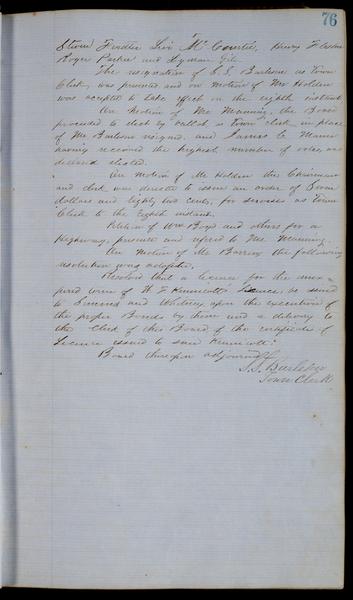 76
Steven Findler Levi McCourtie, Henry F
Roger Parker and Lyman Gile.
The resignation of S. S. Burleson as Town
Clerk, was presented and on motion of Mr Holden
was accepted to take effect on the eighth instant
On Motion of Mr Manning, the Board
proceeded to elect by ballot a town clerk in place
of Mr Burleson resigned, and James
having received the highest number of votes, was
declared elected.
On Motion of Mr Holden the Chairman
and clerk was directed to issue an order of Seven
dollars and eighty two cents, for services as town
Clerk to the Eighth instant.
Petition of Wm Boyd and others for a
Highway, presented and refered to Mr. Manning.
On Motion of Mr Barrow the following
resolution was adopted,
Resolved that a license for the unex
pired term of H. F. License, be issued
to and Whitney upon the execution of
the proper Bonds by them and a delivery to
the Clerk of this Board of the certificate of
License issued to said
Board thereupon adjourned.
S. S. Burleson
Town Clerk